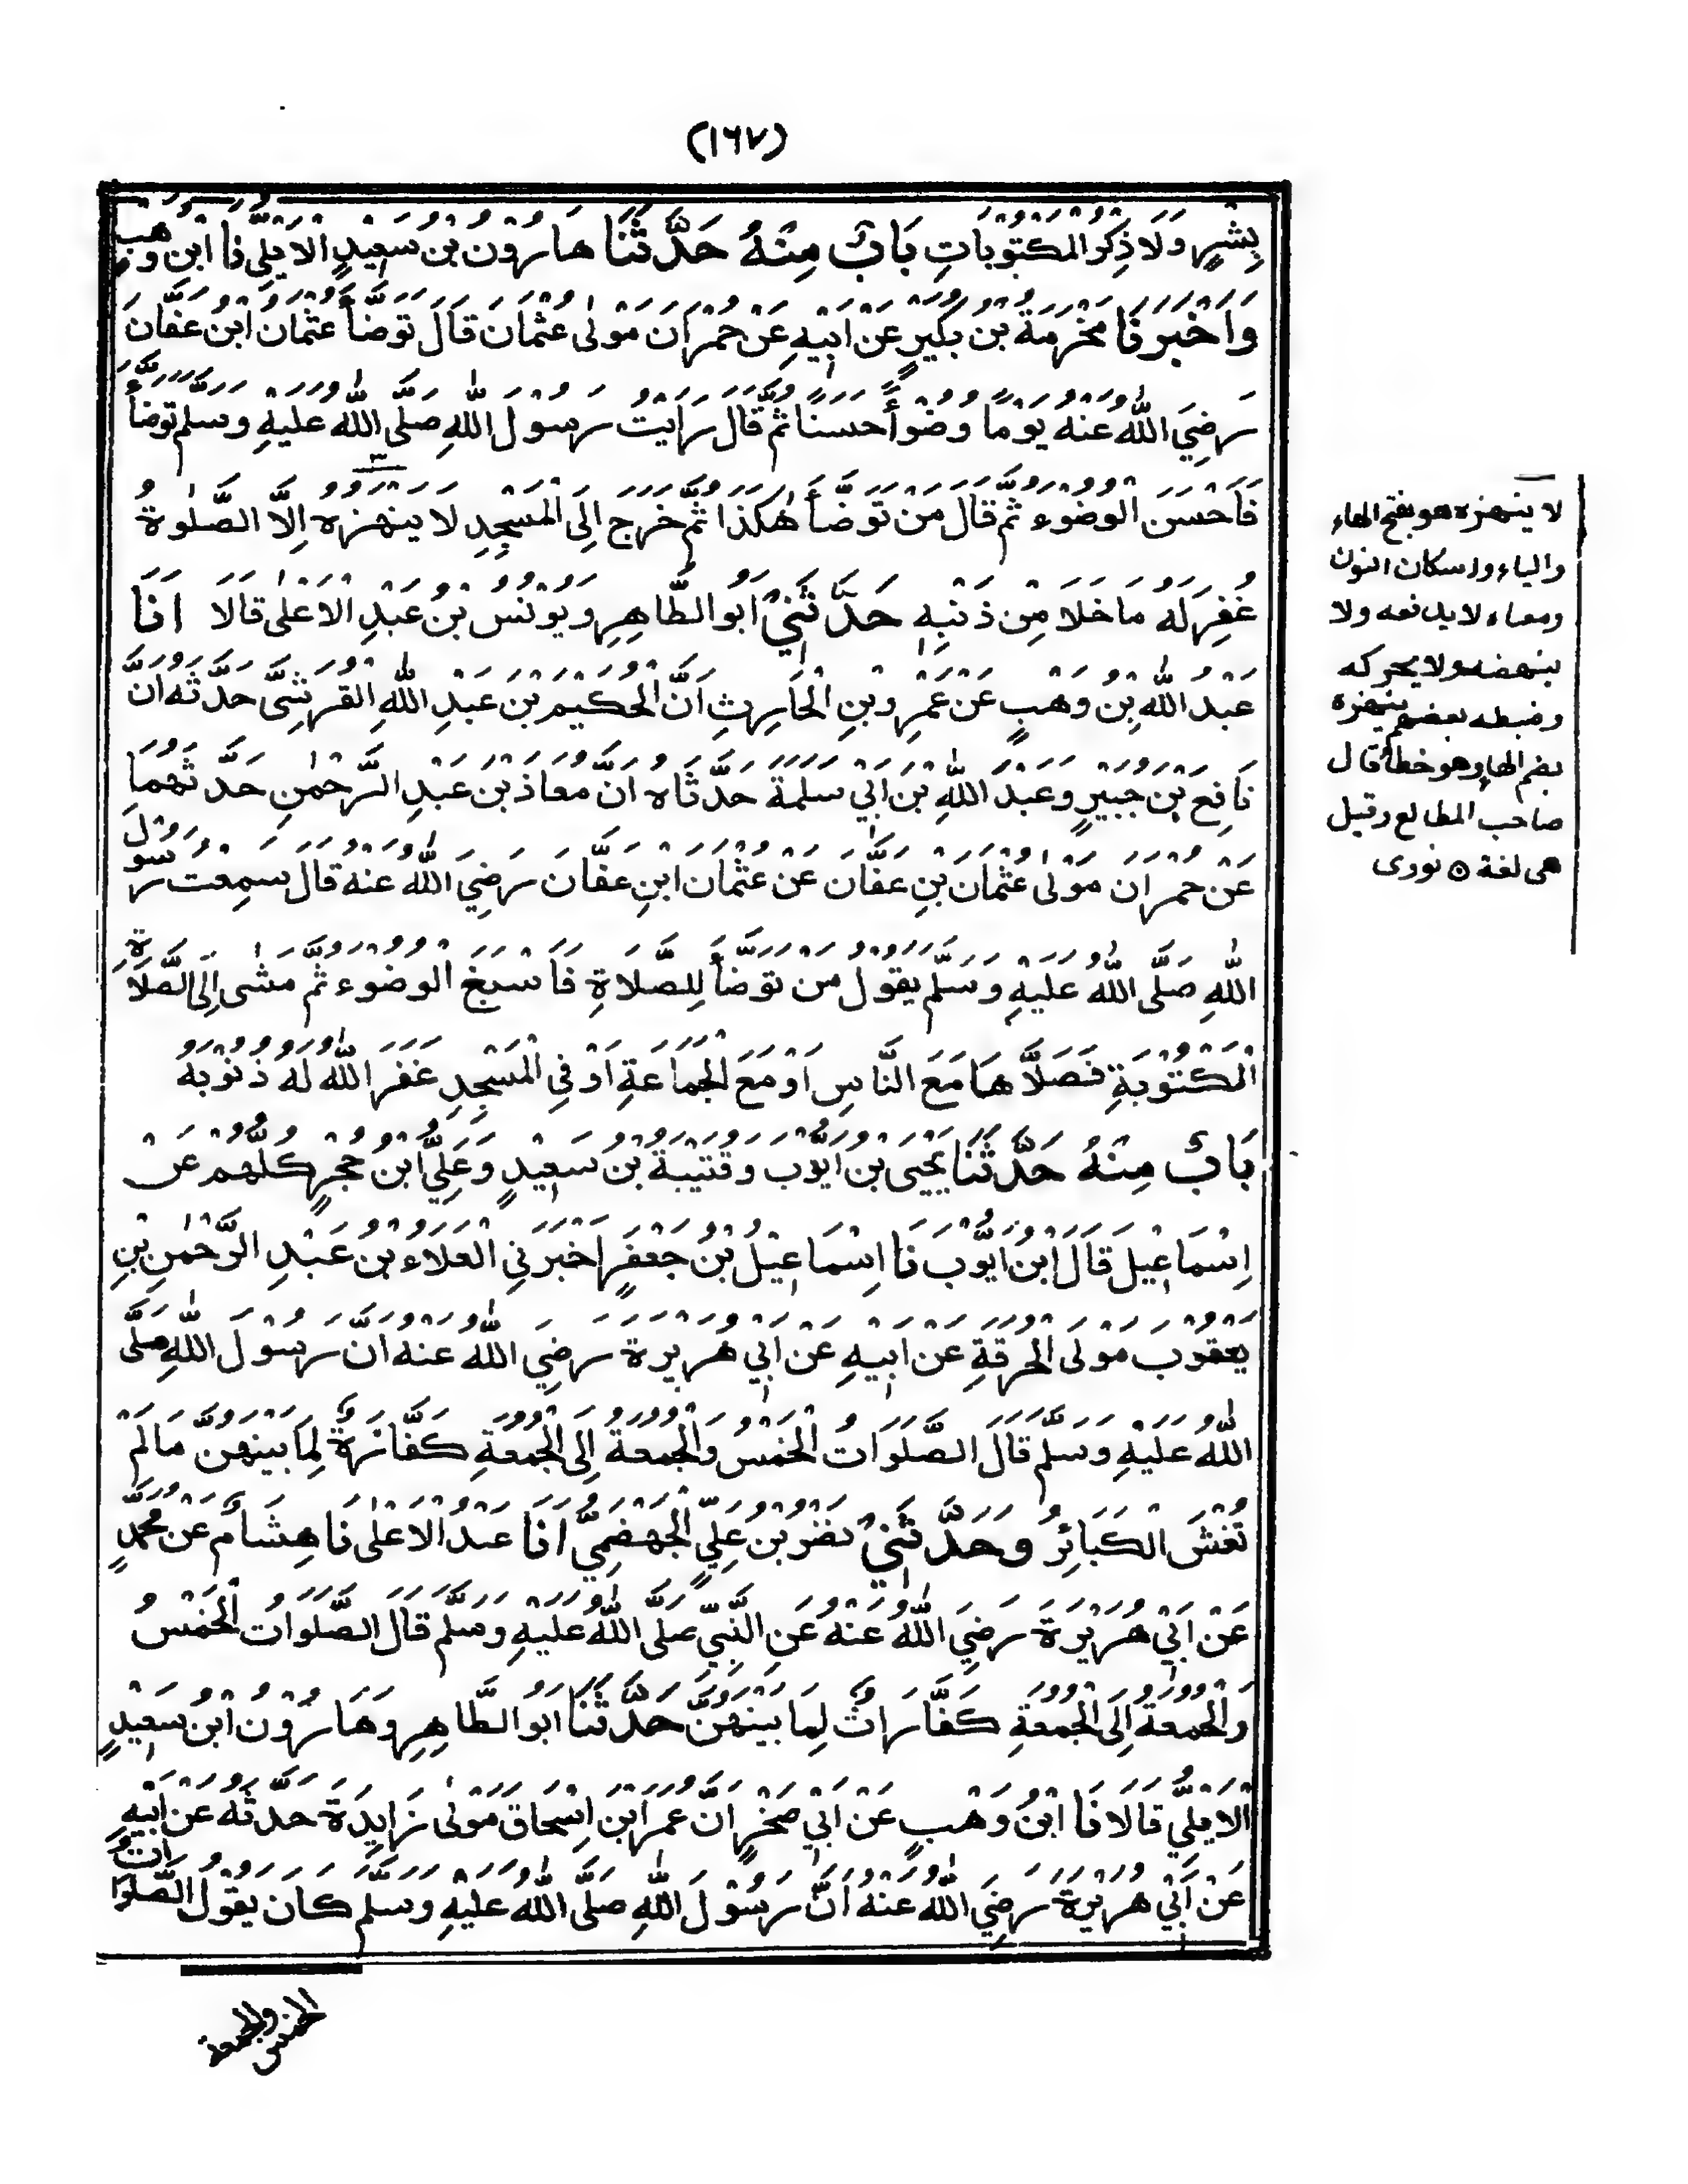 (١٦٧)
بِشْرٍ وَلَا ذِكْرُ الْمَكْتُوْبَاتِ بَابٌ مِنْهُ حَدَّثَنَا هَارُوْنُ بْنُ سَعِيْدٍ الْاَيْلِيُّ نَا ابْنُ وَهْبٍ
وَاَخْبَرَنَا مَخْرَمَةُ بْنُ بُكَيْرٍ عَنْ اَبِيْهِ عَنْ حُمْرَانَ مَوْلٰى عُثْمَانَ قَالَ تَوَضَّأَ عُثْمَانُ ابْنُ عَفَّانَ
رَضِيَ اللّٰهُ عَنْهُ يَوْمًا وُضُوْأً حَسَنًا ثُمَّ قَالَ رَاَيْتُ رَسُوْلَ اللّٰهِ صَلَّى اللّٰهُ عَلَيْهِ وَسَلَّمَ تَوَضَّأَ
فَاَحْسَنَ الْوُضُوْءَ ثُمَّ قَالَ مَنْ تَوَضَّأَ هٰكَذَا ثُمَّ خَرَجَ اِلَى الْمَسْجِدِ لَا يَنْهَزُهُ اِلَّا الصَّلٰوةُ
غُفِرَ لَهُ مَا خَلَا مِنْ ذَنْبِهٖ حَدَّثَنِيْ اَبُو الطَّاهِرِ وَيُوْنُسُ بْنُ عَبْدِ الْاَعْلٰى قَالَا اَنَا
عَبْدُ اللّٰهِ بْنُ وَهْبٍ عَنْ عَمْرِو بْنِ الْحَارِثِ اَنَّ الْحُكَيْمَ بْنَ عَبْدِ اللّٰهِ الْقُرَشِيَّ حَدَّثَهُ اَنَّ
نَافِعَ بْنَ جُبَيْرٍ وَعَبْدَ اللّٰهِ بْنَ اَبِيْ سَلَمَةَ حَدَّثَاهُ اَنَّ مُعَاذَ بْنَ عَبْدِ الرَّحْمٰنِ حَدَّثَهُمَا
عَنْ حُمْرَانَ مَوْلٰى عُثْمَانَ بْنِ عَفَّانَ عَنْ عُثْمَانَ ابْنِ عَفَّانَ رَضِيَ اللّٰهُ عَنْهُ قَالَ سَمِعْتُ رَسُوْلَ
اللّٰهِ صَلَّى اللّٰهُ عَلَيْهِ وَسَلَّمَ يَقُوْلُ مَنْ تَوَضَّأَ لِلصَّلَاةِ فَاَسْبَغَ الْوُضُوْءَ ثُمَّ مَشٰى اِلَى الصَّلَاةِ
الْمَكْتُوْبَةِ فَصَلَّاهَا مَعَ النَّاسِ اَوْ مَعَ الْجَمَاعَةِ اَوْ فِي الْمَسْجِدِ غَفَرَ اللّٰهُ لَهُ ذُنُوْبَهُ
بَابٌ مِنْهُ حَدَّثَنَا يَحْيَى بْنُ اَيُّوْبَ وَقُتَيْبَةُ بْنُ سَعِيْدٍ وَعَلِيُّ ابْنُ حُجْرٍ كُلُّهُمْ عَنْ
اِسْمَاعِيْلَ قَالَ ابْنُ اَيُّوْبَ نَا اِسْمَاعِيْلُ بْنُ جَعْفَرٍ اَخْبَرَنِي الْعَلَاءُ بْنُ عَبْدِ الرَّحْمٰنِ بْنِ
يَعْقُوْبَ مَوْلَى الْحُرَقَةِ عَنْ اَبِيْهِ عَنْ اَبِيْ هُرَيْرَةَ رَضِيَ اللّٰهُ عَنْهُ اَنَّ رَسُوْلَ اللّٰهِ صَلَّى
اللّٰهُ عَلَيْهِ وَسَلَّمَ قَالَ الصَّلَوَاتُ الْخَمْسُ وَالْجُمُعَةُ اِلَى الْجُمُعَةِ كَفَّارَةٌ لِمَا بَيْنَهُنَّ مَا لَمْ
تُغْشَ الْكَبَائِرُ وَحَدَّثَنِيْ نَصْرُ بْنُ عَلِيٍّ الْجَهْضَمِيُّ اَنَا عَبْدُ الْاَعْلٰى نَا هِشَامٌ عَنْ مُحَمَّدٍ
عَنْ اَبِيْ هُرَيْرَةَ رَضِيَ اللّٰهُ عَنْهُ عَنِ النَّبِيِّ صَلَّى اللّٰهُ عَلَيْهِ وَسَلَّمَ قَالَ الصَّلَوَاتُ الْخَمْسُ
وَالْجُمُعَةُ اِلَى الْجُمُعَةِ كَفَّارَاتٌ لِمَا بَيْنَهُنَّ حَدَّثَنَا اَبُو الطَّاهِرِ وَهَارُوْنُ ابْنُ سَعِيْدٍ
الْاَيْلِيُّ قَالَا نَا ابْنُ وَهْبٍ عَنْ اَبِيْ صَخْرٍ اَنَّ عُمَرَ ابْنَ اِسْحَاقَ مَوْلٰى زَايِدَةَ حَدَّثَهُ عَنْ اَبِيْهِ
عَنْ اَبِيْ هُرَيْرَةَ رَضِيَ اللّٰهُ عَنْهُ اَنَّ رَسُوْلَ اللّٰهِ صَلَّى اللّٰهُ عَلَيْهِ وَسَلَّمَ كَانَ يَقُوْلُ الصَّلَوَاتُ
الخمس والجمعة
لا ينهزه هو بفتح الهاء
والياء واسكان النون
ومعناه لا يدفعه ولا
ينهضه ولا يحركه
وضبطه بعضهم ينهزه
بضم الهاء وهو خطأ قال
صاحب المطالع وقيل
هى لغة ۞ نووى